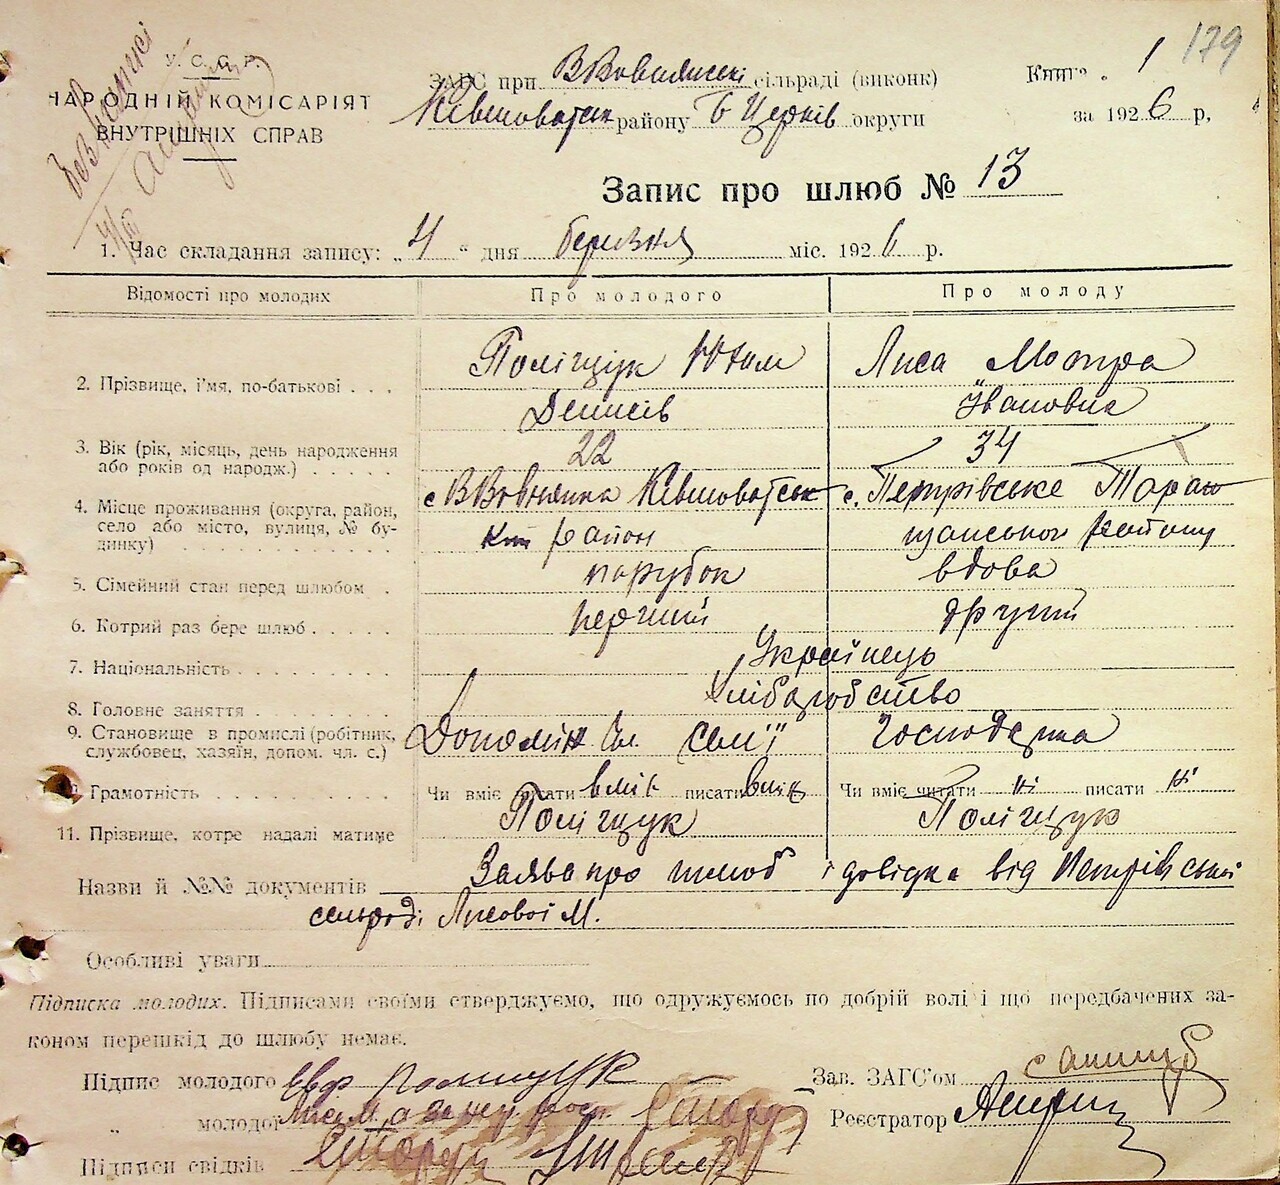 179
У. С. С. Р.
НАРОДНІЙ КОМІСАРІЯТ
ВНУТРІШНІХ СПРАВ
ЗАГС при сільраді (виконк)
Ківшоватськ району Б Церків округи
Книга 1
за 1926 р.
Запис про шлюб № 13
1. Час складання запису: „4" дня березня міс. 1926 р.
Відомості про молодих Про молодого Про молоду
2. Прізвище, і'мя, по-батькові . . . Поліщук Юхим Лиса Мотра
Денисів Івановна
3. Вік (рік, місяць, день народження 22 34
або років од народж.) . . . . .
4. Місце проживання (округа, район, с ВВовнянка Ківшоватськ с. Петрівське Тара
село або місто, вулиця, № бу- район щанського району
динку)
5. Сімейний стан перед шлюбом . парубок вдова
6. Котрий раз бере шлюб . . . . . перший другий
7. Національність . . . . . . . . Українець
8. Головне заняття . . . . . . . . Хліборобство
9. Становище в промислі (робітник, Допоміж чл. сем'ї Господарка
службовец, хазяїн, допом. чл. с.)
Грамотність . . . . . . . . Чи вміє читати вміє писати вміє Чи вміє читати ні писати ні
11. Прізвище, котре надалі матиме Поліщук Поліщук
Назви й №№ документів Заява про шлюб і довідка від Петрівської
сельради Лисової М.
Особливі уваги
Підписка молодих. Підписами своїми стверджуємо, що одружуємось по добрій волі і що передбачених за-
коном перешкід до шлюбу немає.
Підпис молодого Евф Полищук Зав. ЗАГС'ом
„ молодої Реєстратор
Підписи свідків